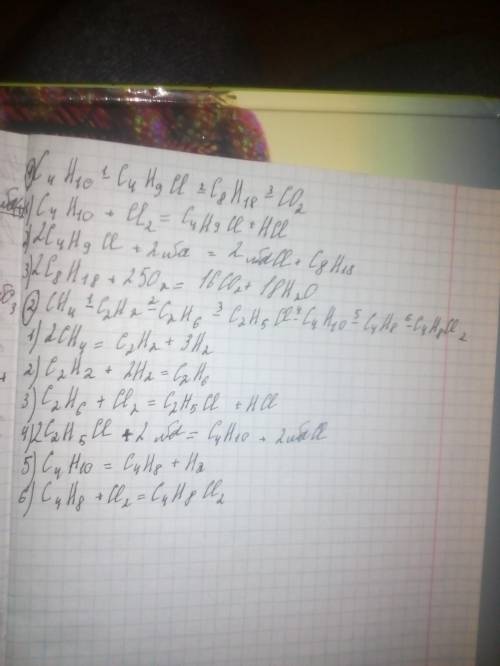 1) C4H10 -1 C4H9Cl -2 C8H18 -3 CO2
1) C4H10 + Cl2 = C4H9Cl + HCl
2) 2C4H9Cl + 2Na = 2NaCl + C8H18
3) 2C8H18 + 25O2 = 16CO2 + 18H2O
2) CH4 -1 C2H2 -2 C2H6 -3 C2H5Cl -4 C4H10 -5 C4H8 -6 C4H8Cl2
1) 2CH4 = C2H2 + 3H2
2) C2H2 + 2H2 = C2H6
3) C2H6 + Cl2 = C2H5Cl + HCl
4) 2C2H5Cl + 2Na = C4H10 + 2NaCl
5) C4H10 = C4H8 + H2
6) C4H8 + Cl2 = C4H8Cl2